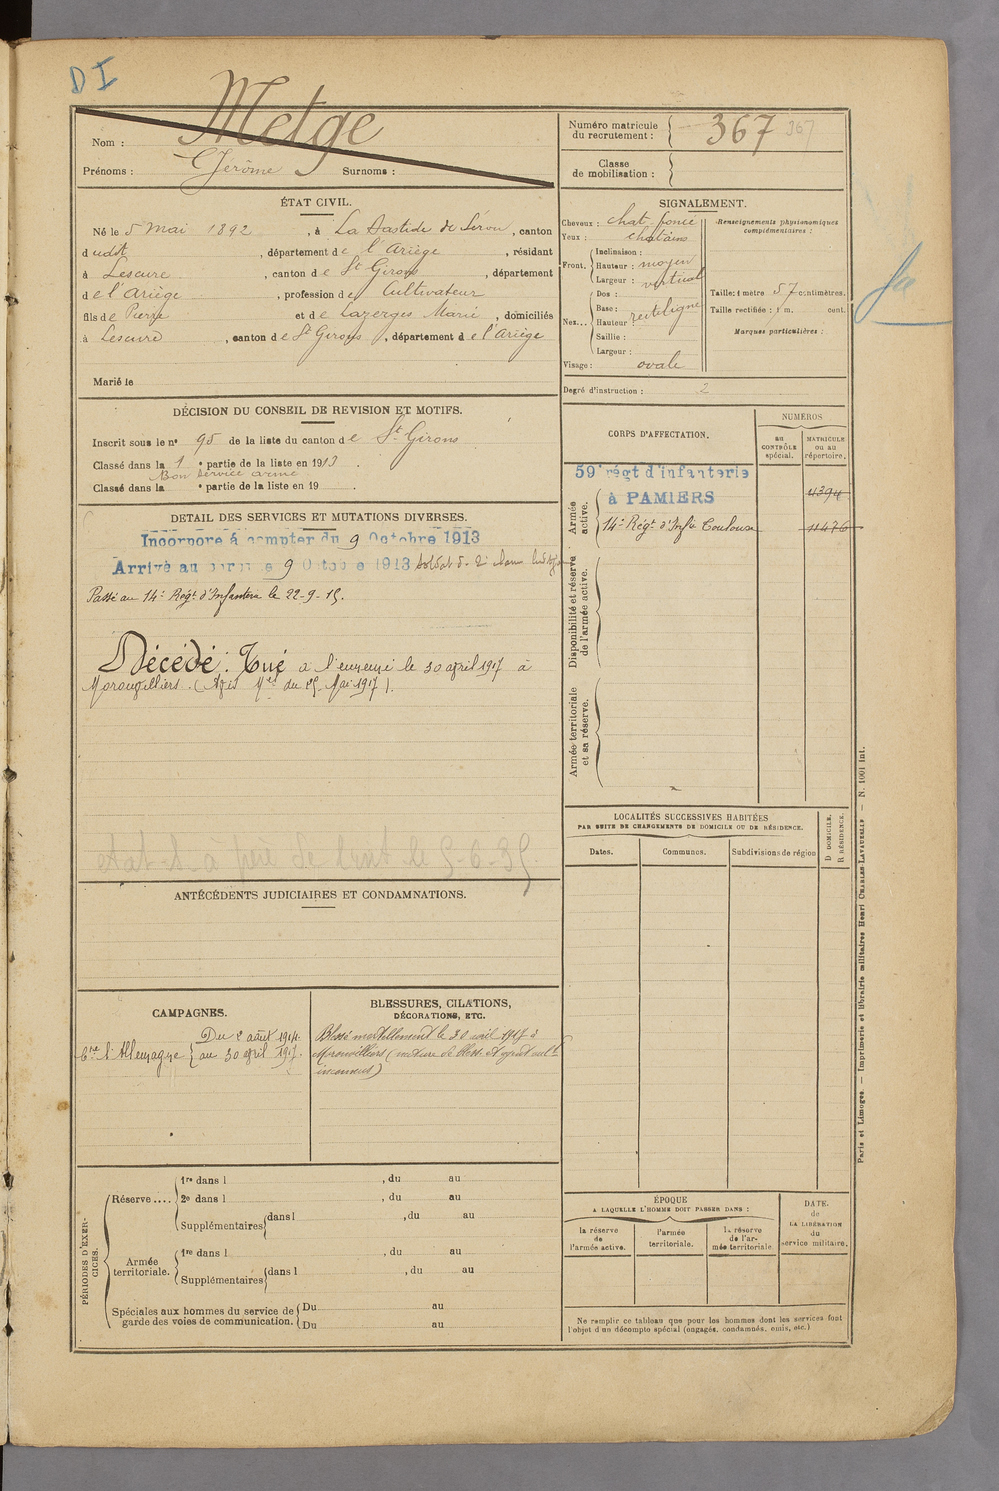 DI
Metge
Nom :
Prénoms : Jérôme Surnoms :
Numéro matricule
du recrutement : 367 367
Classe
de mobilisation :
ÉTAT CIVIL.
Né le 5 Mai 1892, à La Bastide de Sérou, canton
dudit, département de l'Ariège, résidant
à Lescure, canton de St Girons, département
de l'Ariège, profession de Cultivateur
fils de Pierre et de Lazerges Marie, domiciliés
à Lescure, canton de St Girons, département de l'Ariège
Marié le
SIGNALEMENT.
Cheveux : chat. foncé
Yeux : châtains
Front.
Inclinaison :
Hauteur : moyen
Largeur : vertical
Nez...
Dos :
Base : rectiligne
Hauteur :
Saillie :
Largeur :
Visage : ovale
Renseignements physionomiques
complémentaires :
Taille: 1 mètre 57 centimètres.
Taille rectifiée : 1 m. cent.
Marques particulières :
Degré d'instruction : 2
DÉCISION DU CONSEIL DE REVISION ET MOTIFS.
Inscrit sous le n° 95 de la liste du canton de St Girons
Classé dans la 1 e partie de la liste en 1913.
Bon service armé
Classé dans la e partie de la liste en 19
DETAIL DES SERVICES ET MUTATIONS DIVERSES.
Incorporé à compter du 9 Octobre 1913
Arrivé au corps le 9 Octobre 1913 soldat de 2e classe
Passé au 14e Régt d'Infanterie le 22-9-15.
Décédé : Tué à l'ennemi le 30 april 1917 à
Moronvilliers. (Avis Mel du 25 Mai 1917).
le 5-6-35
ANTÉCÉDENTS JUDICIAIRES ET CONDAMNATIONS.
CAMPAGNES.
Ctre l'Allemagne
Du 2 août 1914.
au 30 april 1917.
BLESSURES, CITATIONS,
DÉCORATIONS, ETC.
Blessé mortellement le 30 avril 1917 à
Moronvilliers (nature de bless. et agent
inconnus)
CORPS D'AFFECTATION.
NUMÉROS
au
CONTRÔLE
spécial.
MATRICULE
ou au
répertoire.
Armée
active.
59e régt d'infanterie
à PAMIERS 4394
14e Régt d'Infie Toulouse 11476
Disponibilité et réserve
de l'armée active.
Armée territoriale
et sa réserve.
LOCALITÉS SUCCESSIVES HABITÉES
PAR SUITE DE CHANGEMENTS DE DOMICILE OU DE RÉSIDENCE.
Dates. Communes. Subdivisions de région
D DOMICILE.
R RÉSIDENCE.
PÉRIODES D'EXER-
CICES.
Réserve ....
1re dans l , du au
2e dans l , du au
Supplémentaires dans l , du au
Armée
territoriale.
1re dans l , du au
Supplémentaires dans l , du au
Spéciales aux hommes du service de
garde des voies de communication.
Du au
Du au
ÉPOQUE
A LAQUELLE L'HOMME DOIT PASSER DANS :
la réserve
de
l'armée active.
l'armée
territoriale.
la réserve
de l'ar-
mée territoriale.
DATE
de
LA LIBÉRATION
du
service militaire.
Ne remplir ce tableau que pour les hommes dont les services font
l'objet d'un décompte spécial (engagés, condamnés, omis, etc.)
Paris et Limoges. — Imprimerie et librairie militaires Henri CHARLES-LAVAUZELLE — N. 1001 int.